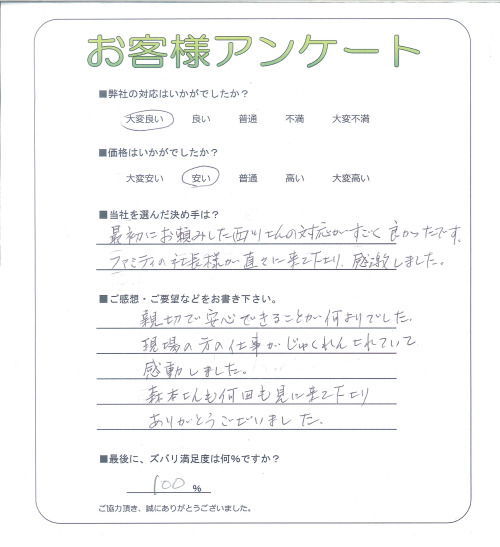 お客様アンケート
■弊社の対応はいかがでしたか？
大変良い 良い 普通 不満 大変不満
■価格はいかがでしたか？
大変安い 安い 普通 高い 大変高い
■当社を選んだ決め手は？
最初にお頼みした西川さんの対応がすごく良かったです。
ファミティの社長様が直々に来て下さり、感激しました。
■ご感想・ご要望などをお書き下さい。
親切で安心できることが何よりでした。
現場の方の仕事がじゅくれんされていて
感動しました。
森本さんも何回も見に来て下さり
ありがとうございました。
■最後に、ズバリ満足度は何%ですか？
100 %
ご協力頂き、誠にありがとうございました。